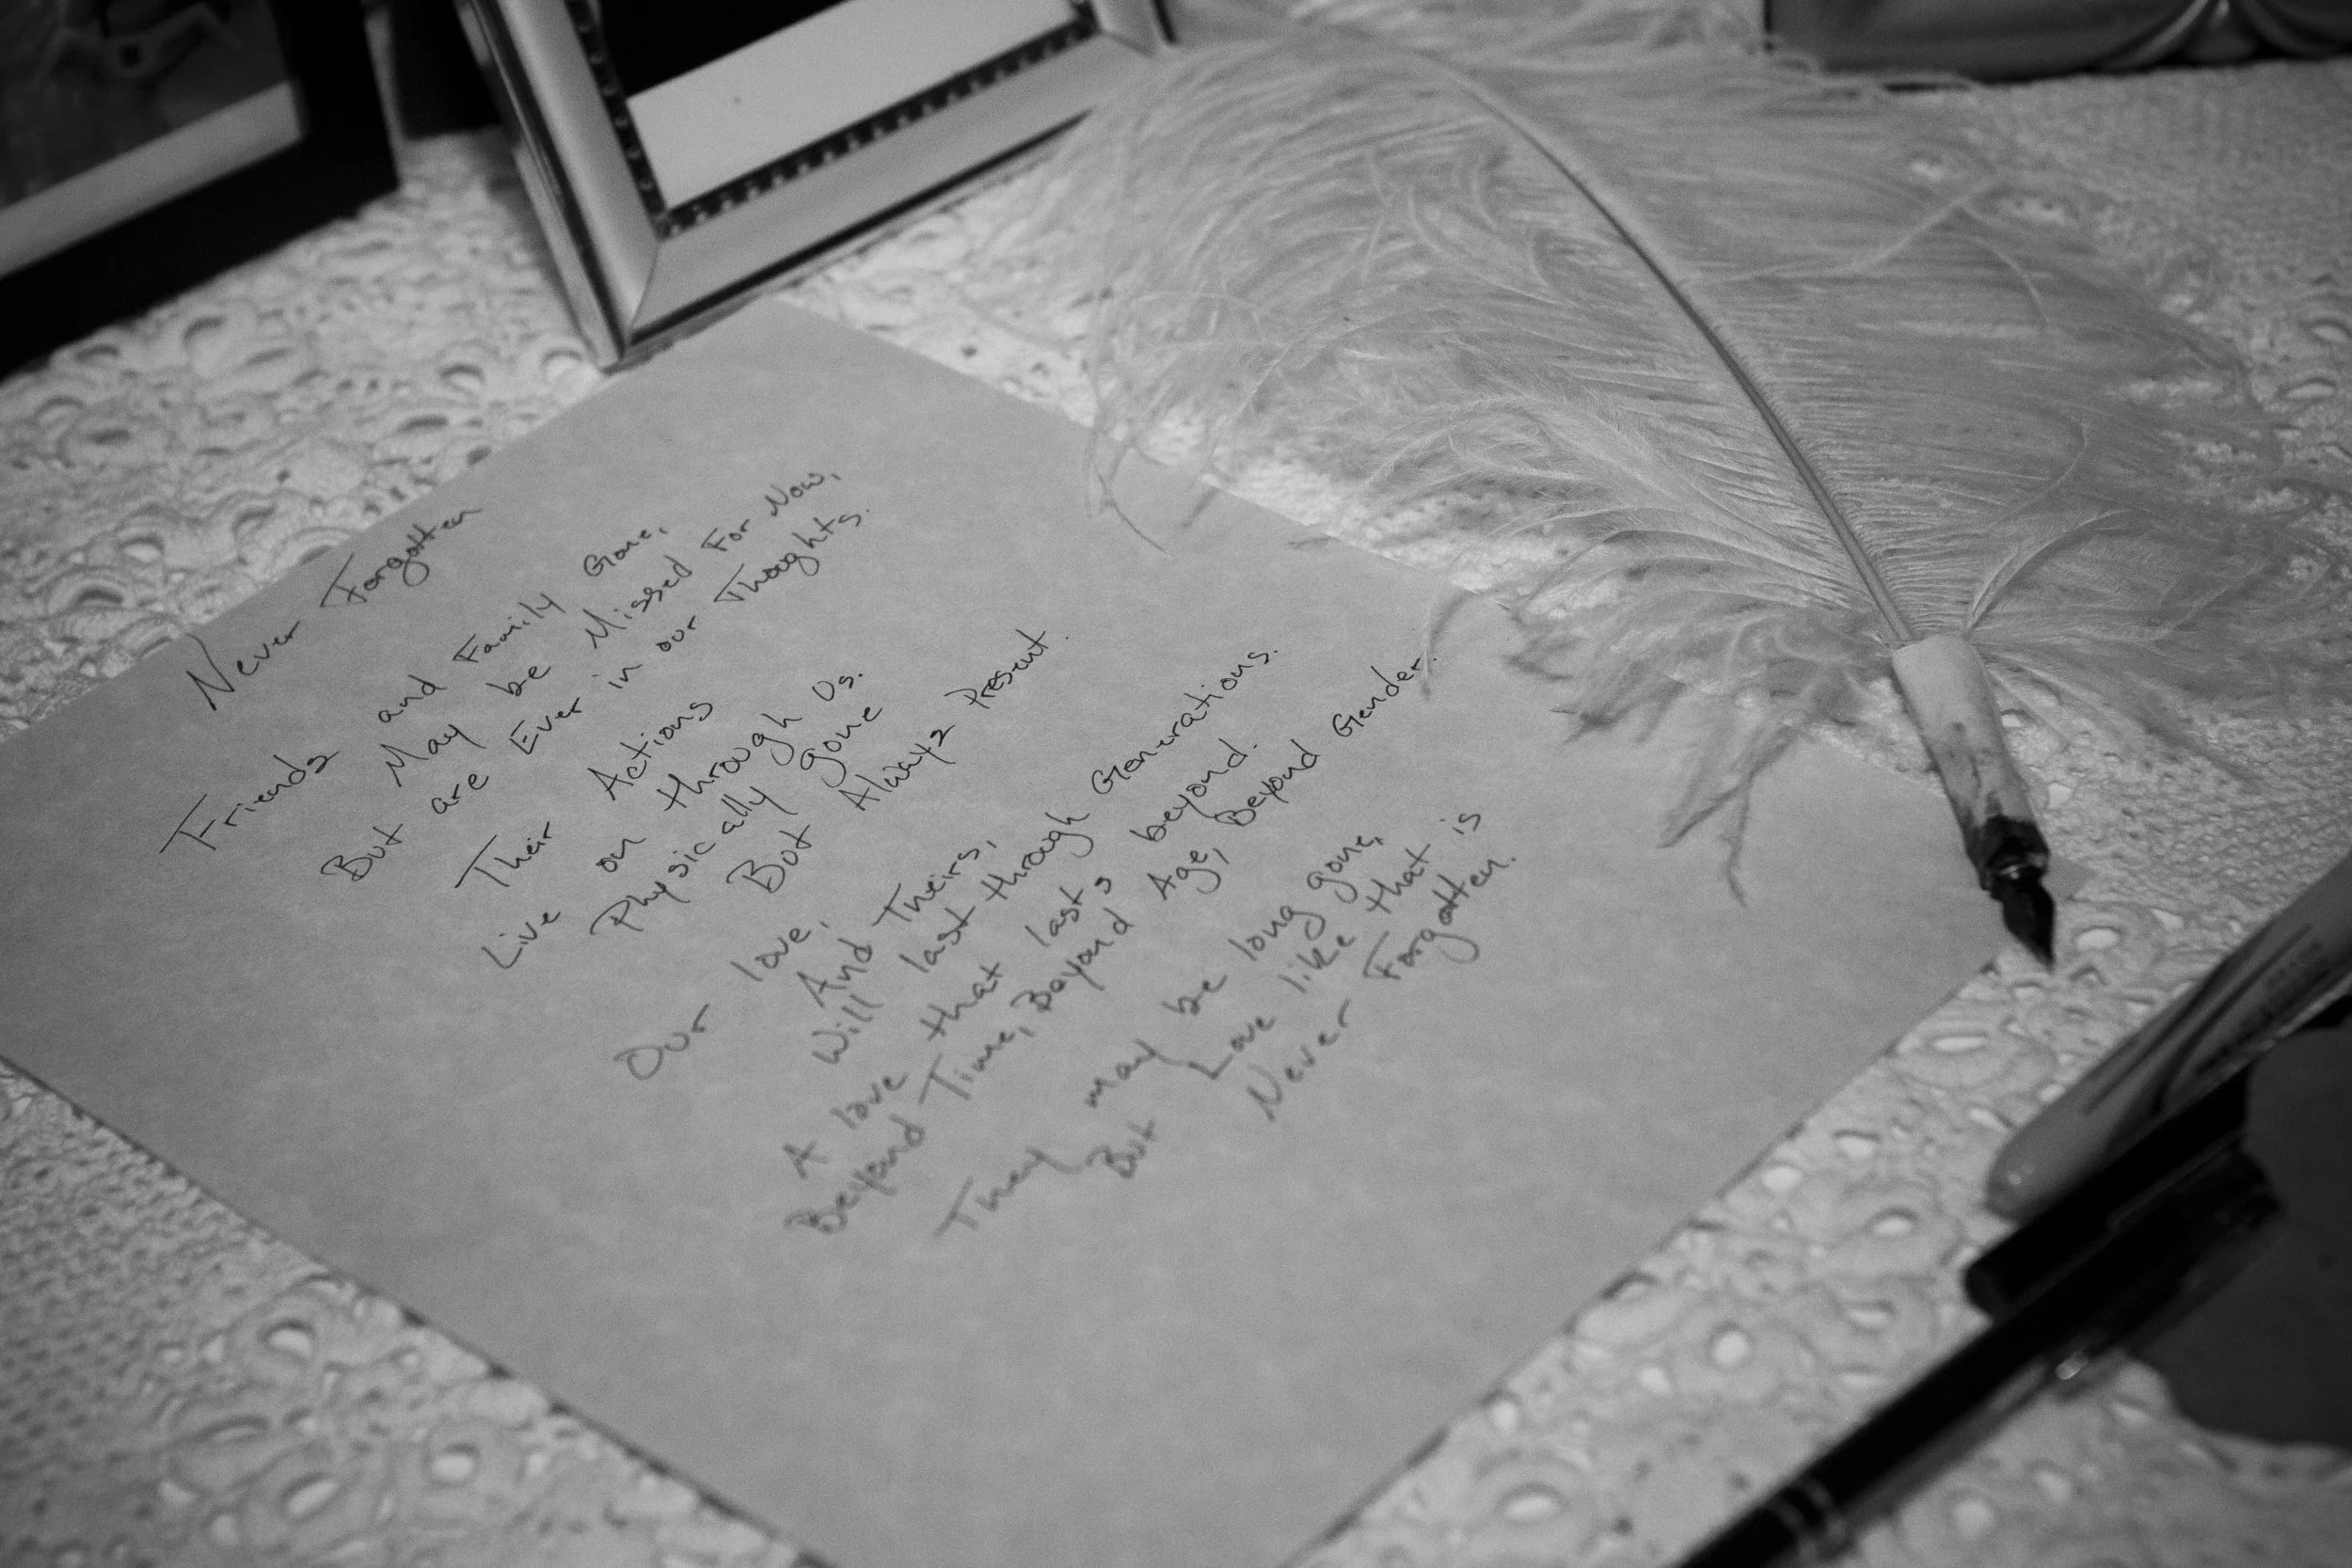 Never Forgotten
Friends and Family Gone,
May be Missed For Now,
But are Ever in our Thoughts.
Their Actions
Live on through Us.
Physically gone
But Always Present.
Our love,
And Theirs,
Will last through Generations.
A love that lasts beyond.
Beyond Time, Beyond Age, Beyond Gender.
They may be long gone,
But Love like that is
Never Forgotten.